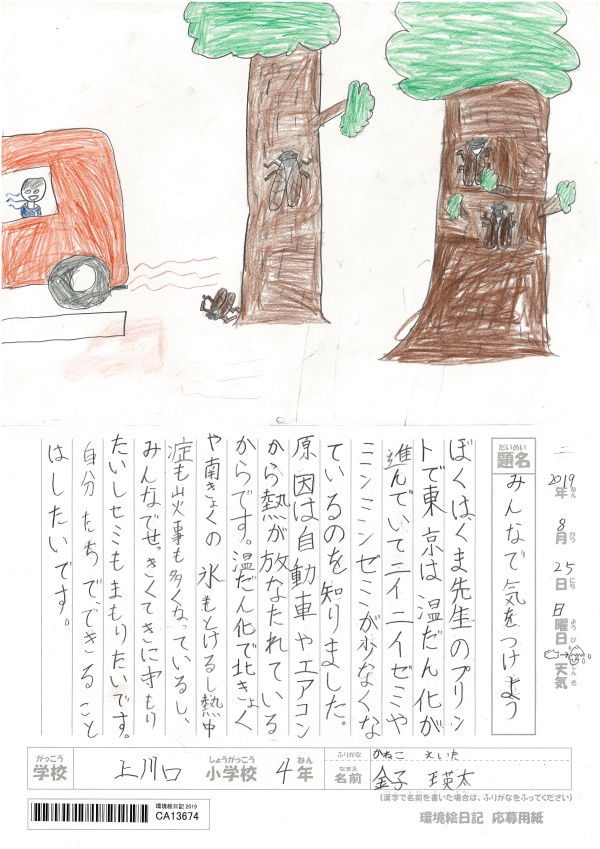 2019年ねん 8月がつ 25日にち 日曜日ようび 天気てんき
題名だいめい みんなで気をつけよう
ぼくは、くま先生のプリン
トで東京は温だん化が
進んでいてニイニイゼミや
ミンミンゼミが少なくな
ているのを知りました。
原因は自動車やエアコン
から熱が放なたれている
からです。温だん化で北きょく
や南きょくの氷もとけるし熱中
症も山火事も多くなっているし、
みんなでせっきくてきに守もり
たいしセミもまもりたいです。
自分たちで、できること
はしたいです。
学校がっこう 上川口 小学校しょうがっこう 4年ねん
ふりがな かねこ えいた
名前なまえ 金子 瑛太
(漢字で名前を書いた場合は、ふりがなをふってください)
環境絵日記 2019
CA13674
環境絵日記 応募用紙